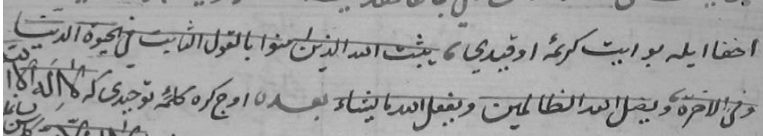 اخفا ايله بو ايت كريمه اوقيدي، يثبت الله الذين امنوا بالقول الثابت في الحيوة الدنيا
وفي الاخرة ويضل الله الظالمين ويفعل الله ما يشاء بعده اوج كره كلمه توحيدى كه لا اله الا